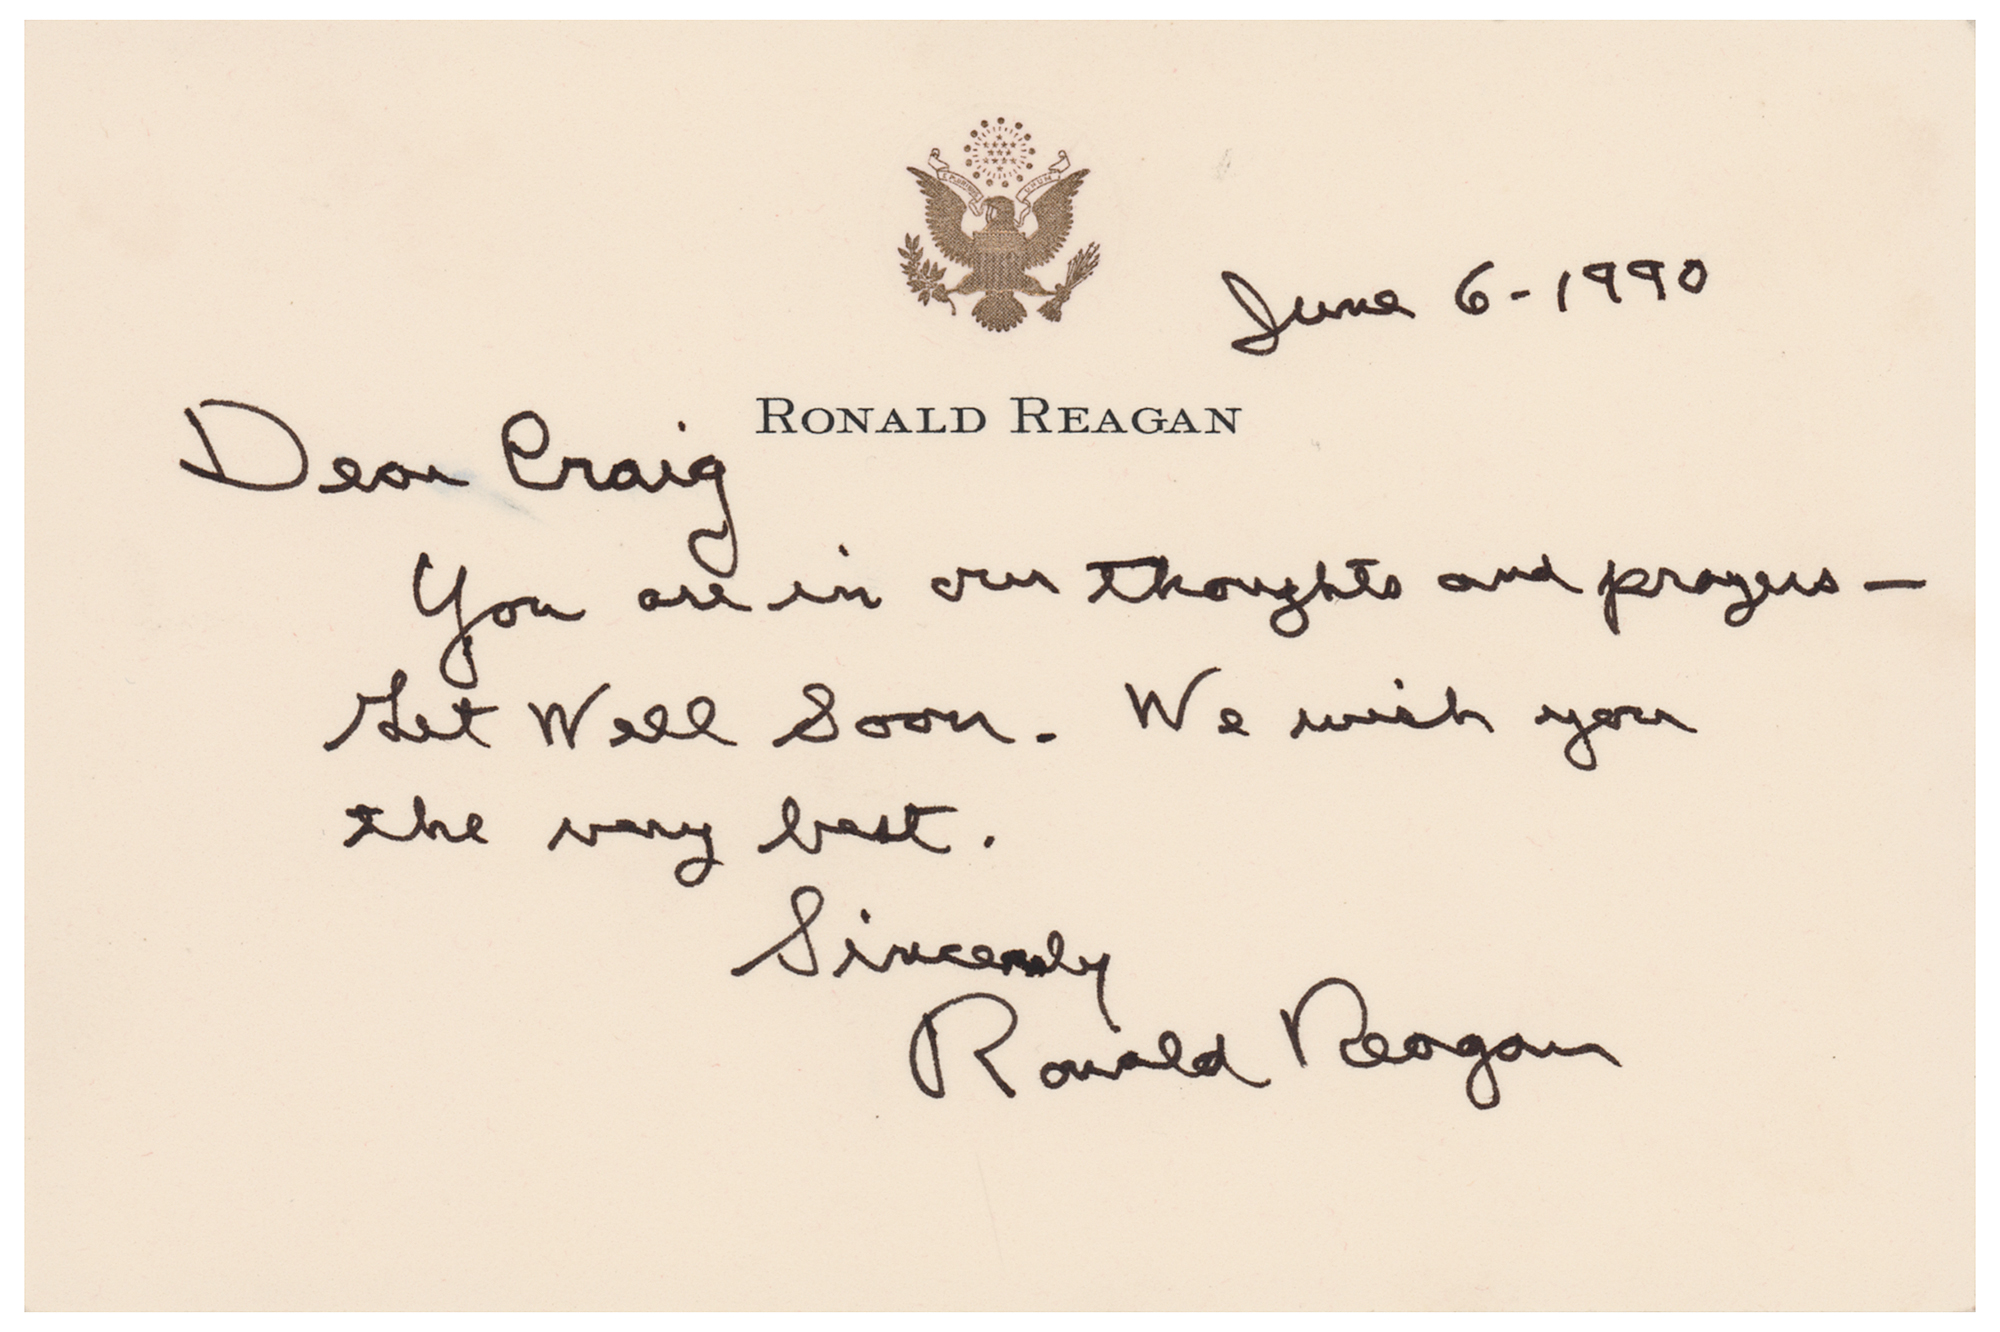 E PLURIBUS UNUM
June 6-1990
RONALD REAGAN
Dear Craig
You are in our thoughts and prayers —
Get Well Soon. We wish you
the very best.
Sincerely
Ronald Reagan